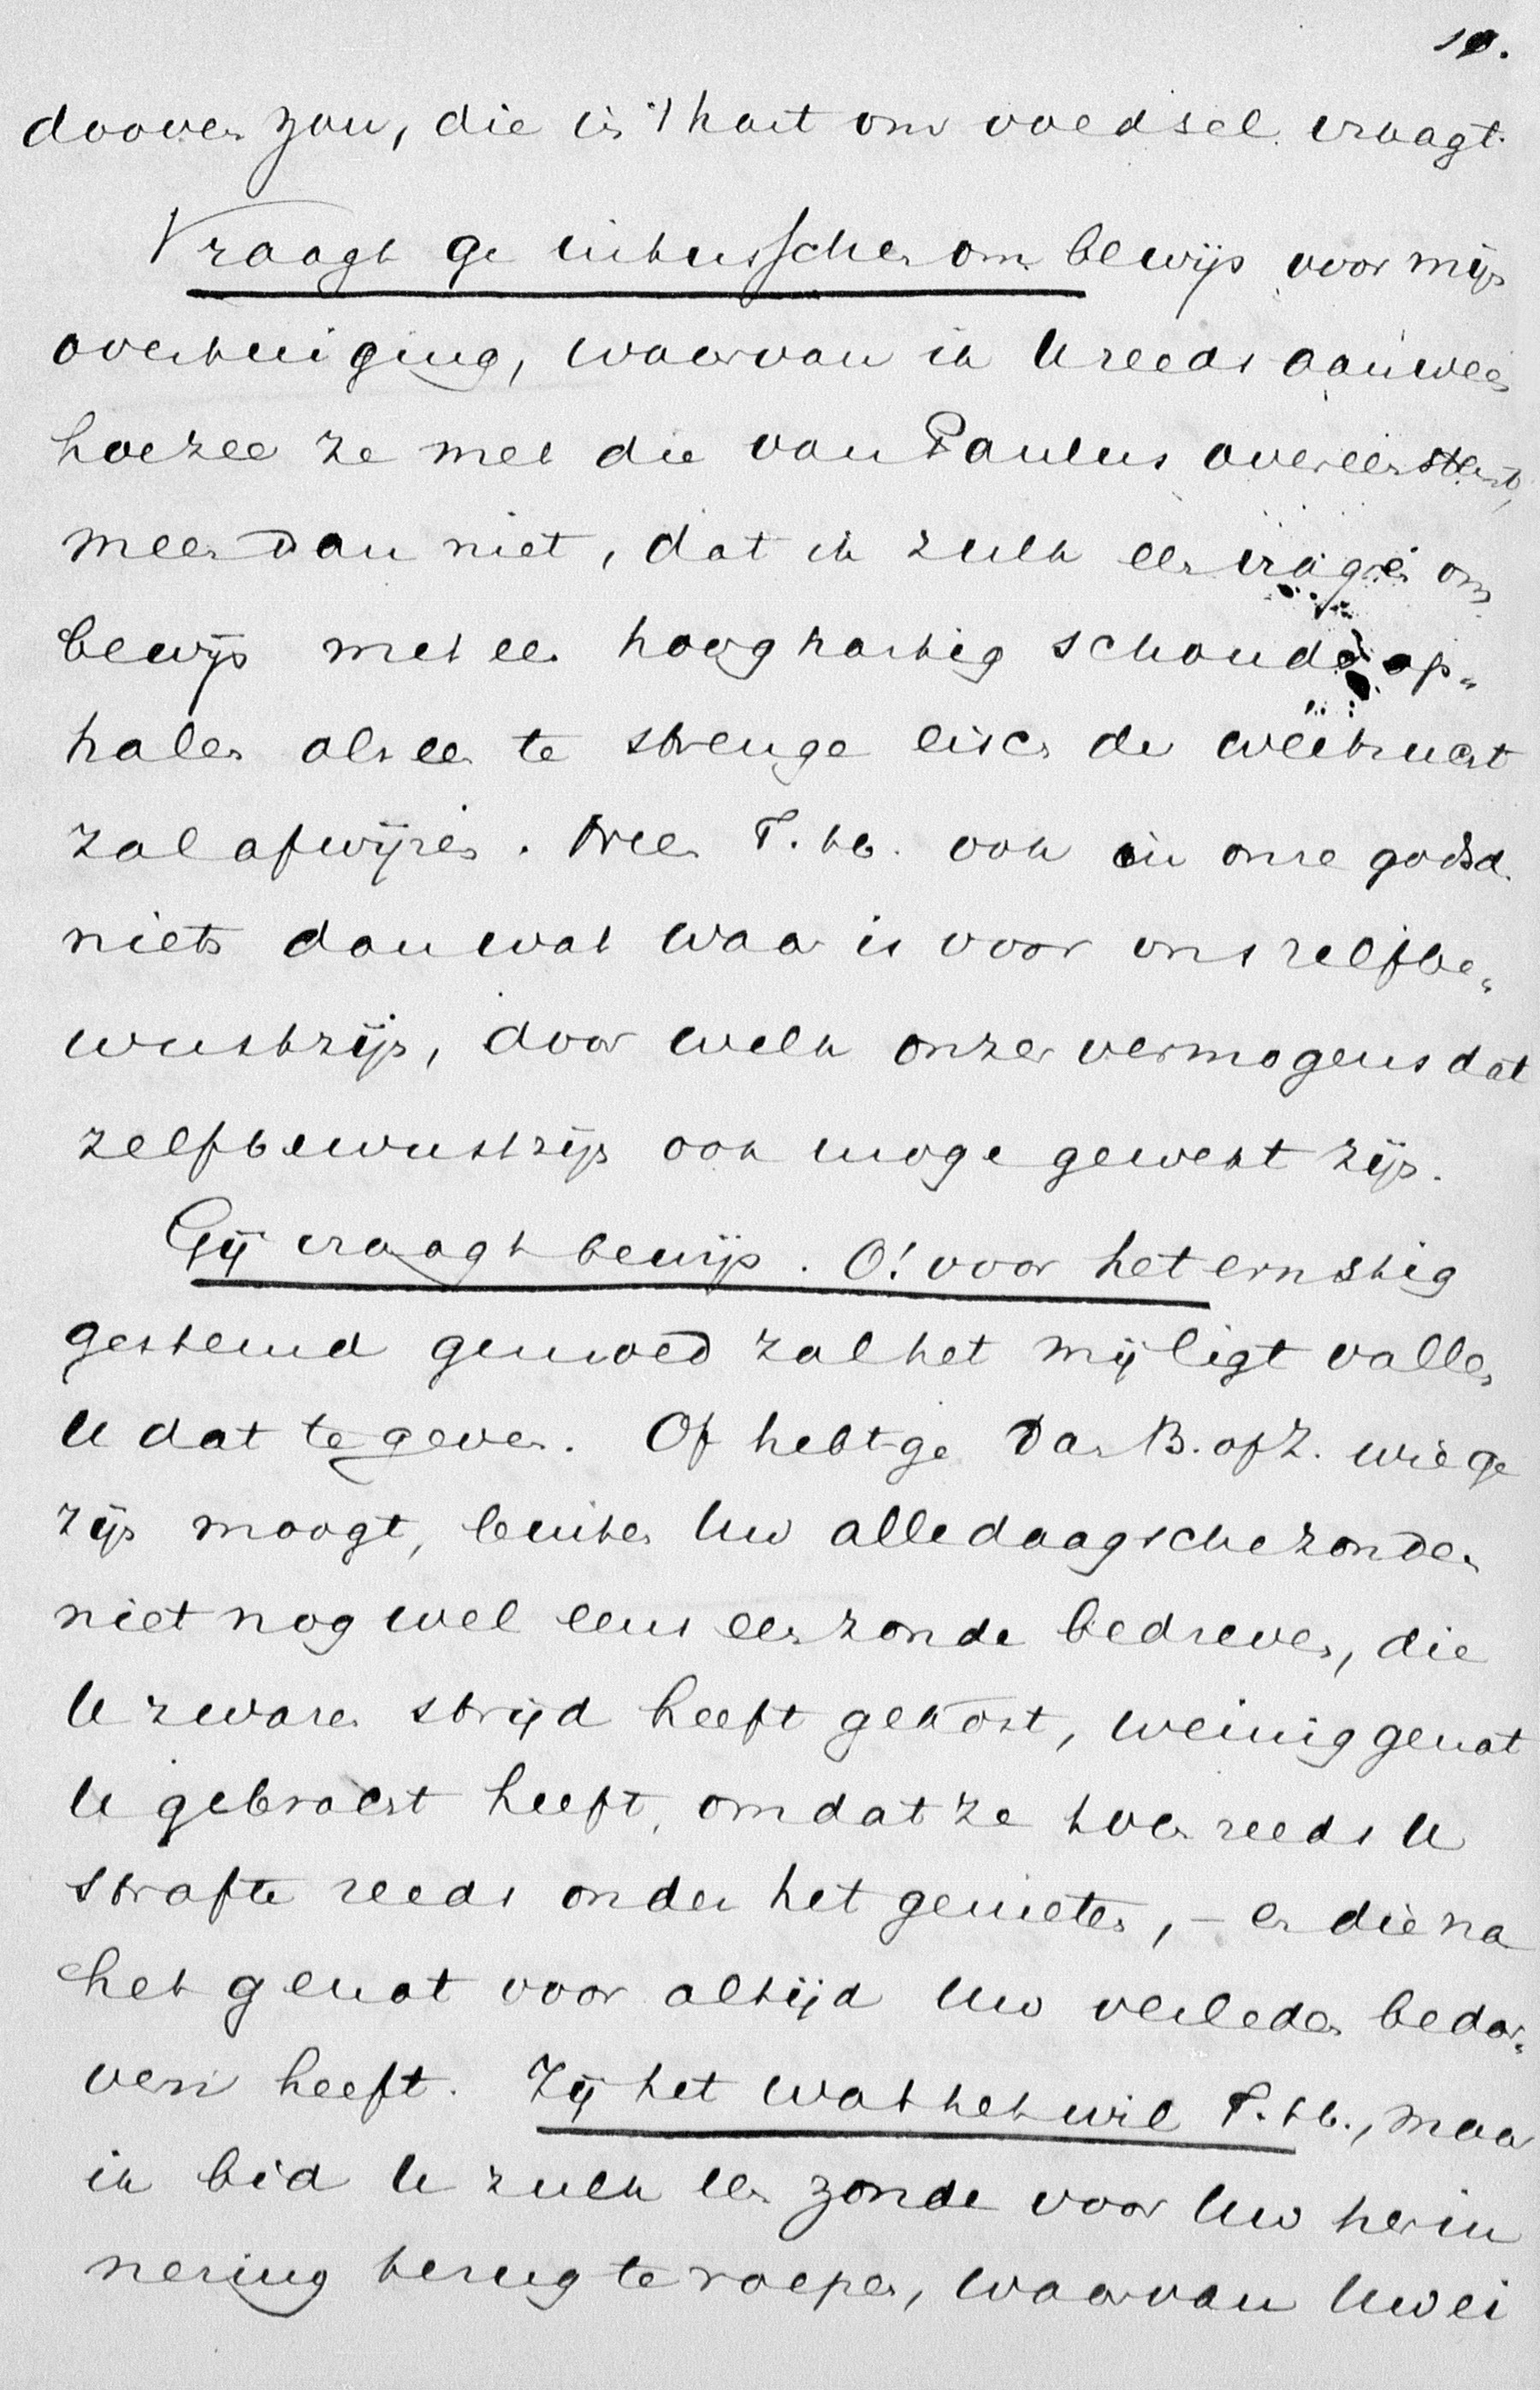 10.
dooven zou, die in 't hart om voedsel vraagt.
Vraagt ge intusschen om bewijs voor mijn
overtuiging, waarvan ik U reeds aanwees
hoezee ze met die van Paulus overeenstemt,
meen dan niet, dat ik zulk een vragen om
bewijs met een hooghartig schouderop„
halen als een te strenge eisch der weetzucht
zal afwijzen. Neen T. h. ook in onze godsd.
niets dan wat waar is voor ons zelfbe„
wustzijn, door welk onzer vermogens dat
zelfbewustzijn ook moge gewekt zijn.
Gij vraagt bewijs. O! voor het ernstig
gestemd gemoed zal het mij ligt vallen
U dat te geven. Of hebt ge dan B. of Z. wie ge
zijn moogt, buiten Uw alledaagsche zonden
niet nog wel eens een zonde bedreven, die
U zware strijd heeft gekost, weinig genot
U gebracht heeft, omdat ze toen reeds U
strafte reeds onder het genieten, – en die na
het genot voor altijd Uw verleden bedor„
ven heeft. Zij het wat het wil T. h., maar
ik bid U zulk een zonde voor Uw herin
nering terug te roepen, waarvan Uw ei